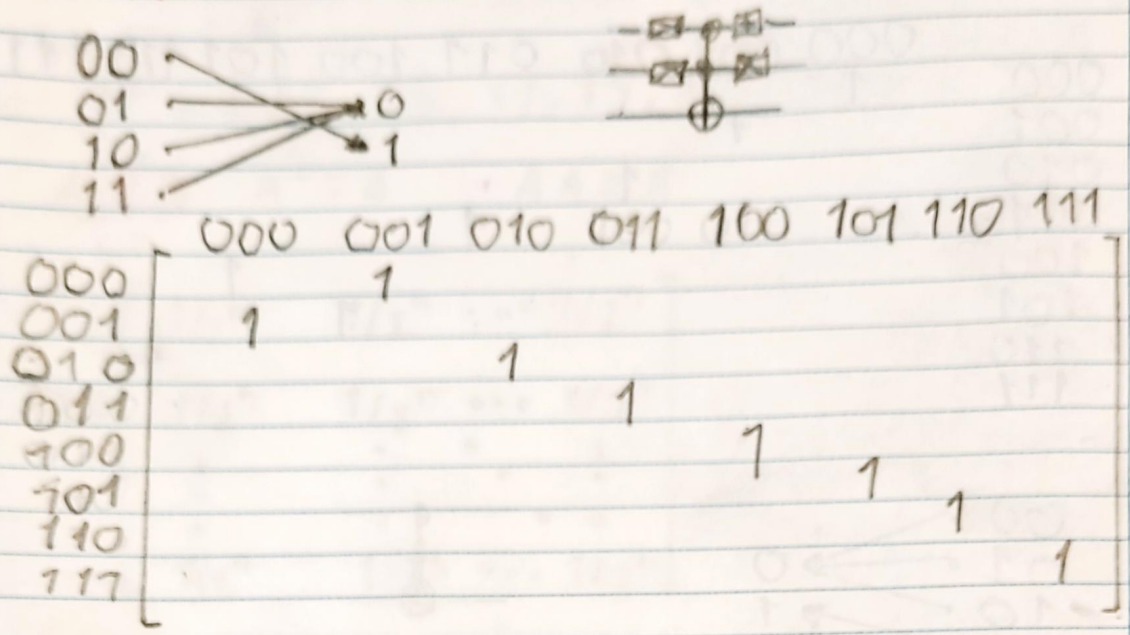 00
01 0
10 1
11
000 001 010 011 100 101 110 111
000 1
001 1
010 1
011 1
100 1
101 1
110 1
111 1